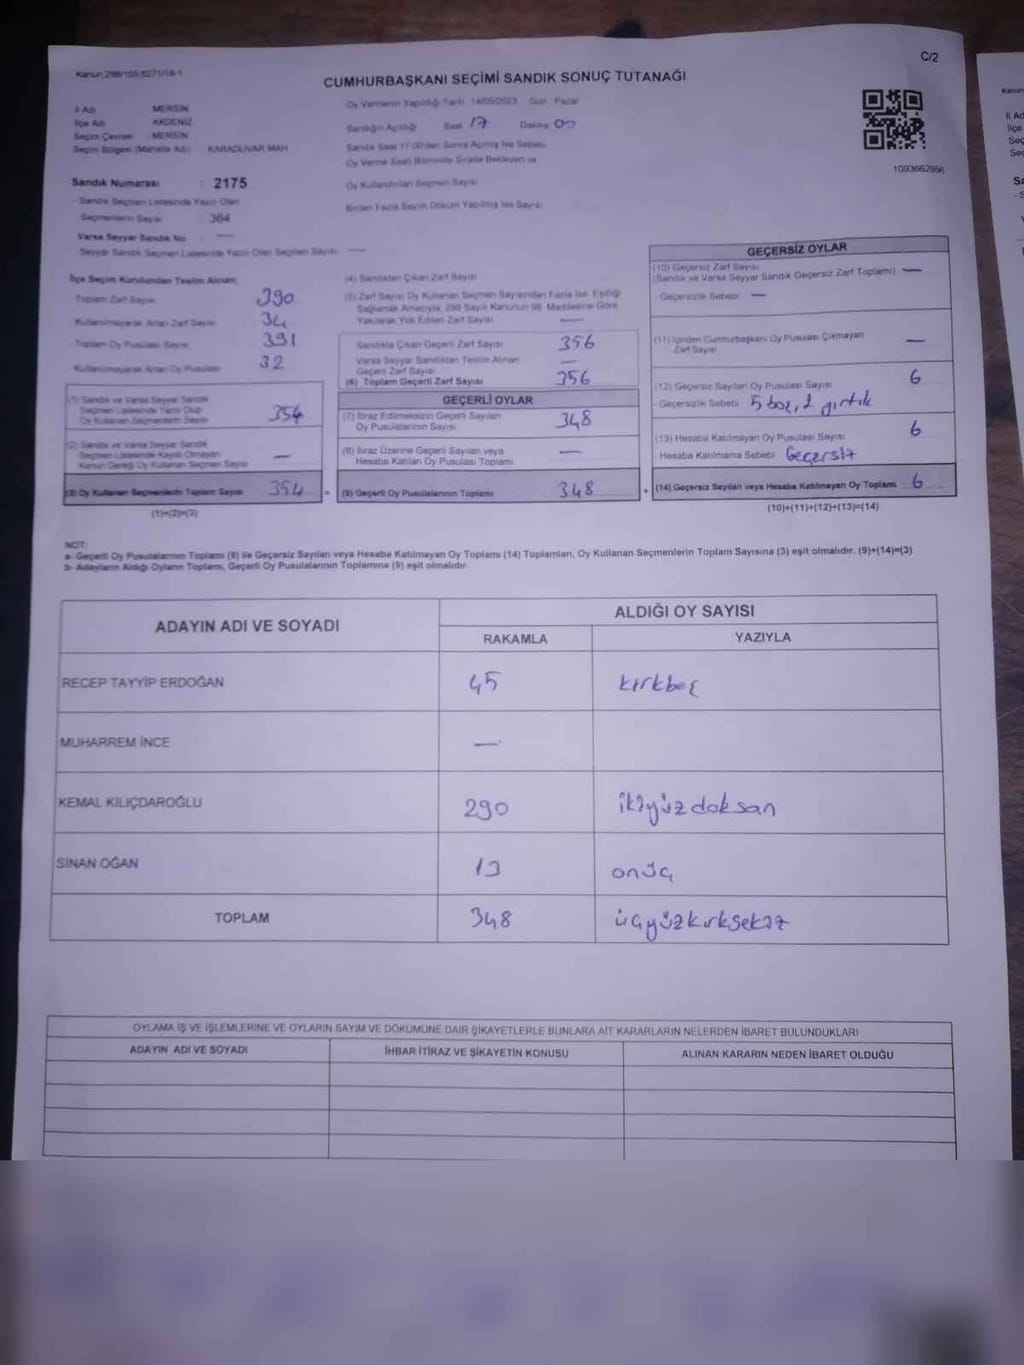 Kanun 298/105,6271/18-1
C/2
CUMHURBAŞKANI SEÇİMİ SANDIK SONUÇ TUTANAĞI
İl Adı MERSİN
İlçe Adı AKDENİZ
Seçim Çevresi : MERSİN
Seçim Bölgesi (Mahalle Adı) KARADUVAR MAH.
Oy Vermenin Yapıldığı Tarih 14/05/2023 Gün Pazar
Sandığın Açıldığı Saat 17 Dakika 00
Sandık Saat 17:00'den Sonra Açılmış İse Sebebi
Oy Verme Saati Bitiminde Sırada Bekleyen ve
Oy Kullandırılan Seçmen Sayısı
Birden Fazla Sayım Döküm Yapılmış İse Sayısı
1093662956
Sandık Numarası : 2175
- Sandık Seçmen Listesinde Yazılı Olan
Seçmenlerin Sayısı : 364
Varsa Seyyar Sandık No : —
- Seyyar Sandık Seçmen Listesinde Yazılı Olan Seçmen Sayısı —
İlçe Seçim Kurulundan Teslim Alınan;
- Toplam Zarf Sayısı 390
- Kullanılmayarak Artan Zarf Sayısı 34
- Toplam Oy Pusulası Sayısı 391
- Kullanılmayarak Artan Oy Pusulası 32
(1) Sandık ve Varsa Seyyar Sandık
Seçmen Listesinde Yazılı Olup
Oy Kullanan Seçmenlerin Sayısı 354
(2) Sandık ve Varsa Seyyar Sandık
Seçmen Listesinde Kayıtlı Olmayan
Kanun Gereği Oy Kullanan Seçmen Sayısı —
(3) Oy Kullanan Seçmenlerin Toplam Sayısı 354
(1)+(2)=(3)
(4) Sandıktan Çıkan Zarf Sayısı
(5) Zarf Sayısı Oy Kullanan Seçmen Sayısından Fazla İse, Eşitliği
Sağlamak Amacıyla, 298 Sayılı Kanunun 98. Maddesine Göre
Yakılarak Yok Edilen Zarf Sayısı —
Sandıkta Çıkan Geçerli Zarf Sayısı 356
Varsa Seyyar Sandıktan Teslim Alınan
Geçerli Zarf Sayısı —
(6) Toplam Geçerli Zarf Sayısı 356
GEÇERLİ OYLAR
(7) İtiraz Edilmeksizin Geçerli Sayılan
Oy Pusulalarının Sayısı 348
(8) İtiraz Üzerine Geçerli Sayılan veya
Hesaba Katılan Oy Pusulası Toplamı —
(9) Geçerli Oy Pusulalarının Toplamı 348
GEÇERSİZ OYLAR
(10) Geçersiz Zarf Sayısı
(Sandık ve Varsa Seyyar Sandık Geçersiz Zarf Toplamı) —
- Geçersizlik Sebebi —
(11) İçinden Cumhurbaşkanı Oy Pusulası Çıkmayan
Zarf Sayısı —
(12) Geçersiz Sayılan Oy Pusulası Sayısı 6
- Geçersizlik Sebebi 5 boz,
(13) Hesaba Katılmayan Oy Pusulası Sayısı 6
- Hesaba Katılmama Sebebi Geçersiz
(14) Geçersiz Sayılan veya Hesaba Katılmayan Oy Toplamı 6
(10)+(11)+(12)+(13)=(14)
NOT:
a- Geçerli Oy Pusulalarının Toplamı (9) ile Geçersiz Sayılan veya Hesaba Katılmayan Oy Toplamı (14) Toplamları, Oy Kullanan Seçmenlerin Toplam Sayısına (3) eşit olmalıdır. (9)+(14)=(3)
b- Adayların Aldığı Oyların Toplamı, Geçerli Oy Pusulalarının Toplamına (9) eşit olmalıdır.
ADAYIN ADI VE SOYADI
ALDIĞI OY SAYISI
RAKAMLA YAZIYLA
RECEP TAYYİP ERDOĞAN 45 kırkbeş
MUHARREM İNCE —
KEMAL KILIÇDAROĞLU 290 ikiyüzdoksan
SİNAN OĞAN 13 onüç
TOPLAM 348 üçyüzkırksekiz
OYLAMA İŞ VE İŞLEMLERİNE VE OYLARIN SAYIM VE DÖKÜMÜNE DAİR ŞİKAYETLERLE BUNLARA AİT KARARLARIN NELERDEN İBARET BULUNDUKLARI
ADAYIN ADI VE SOYADI İHBAR İTİRAZ VE ŞİKAYETİN KONUSU ALINAN KARARIN NEDEN İBARET OLDUĞU